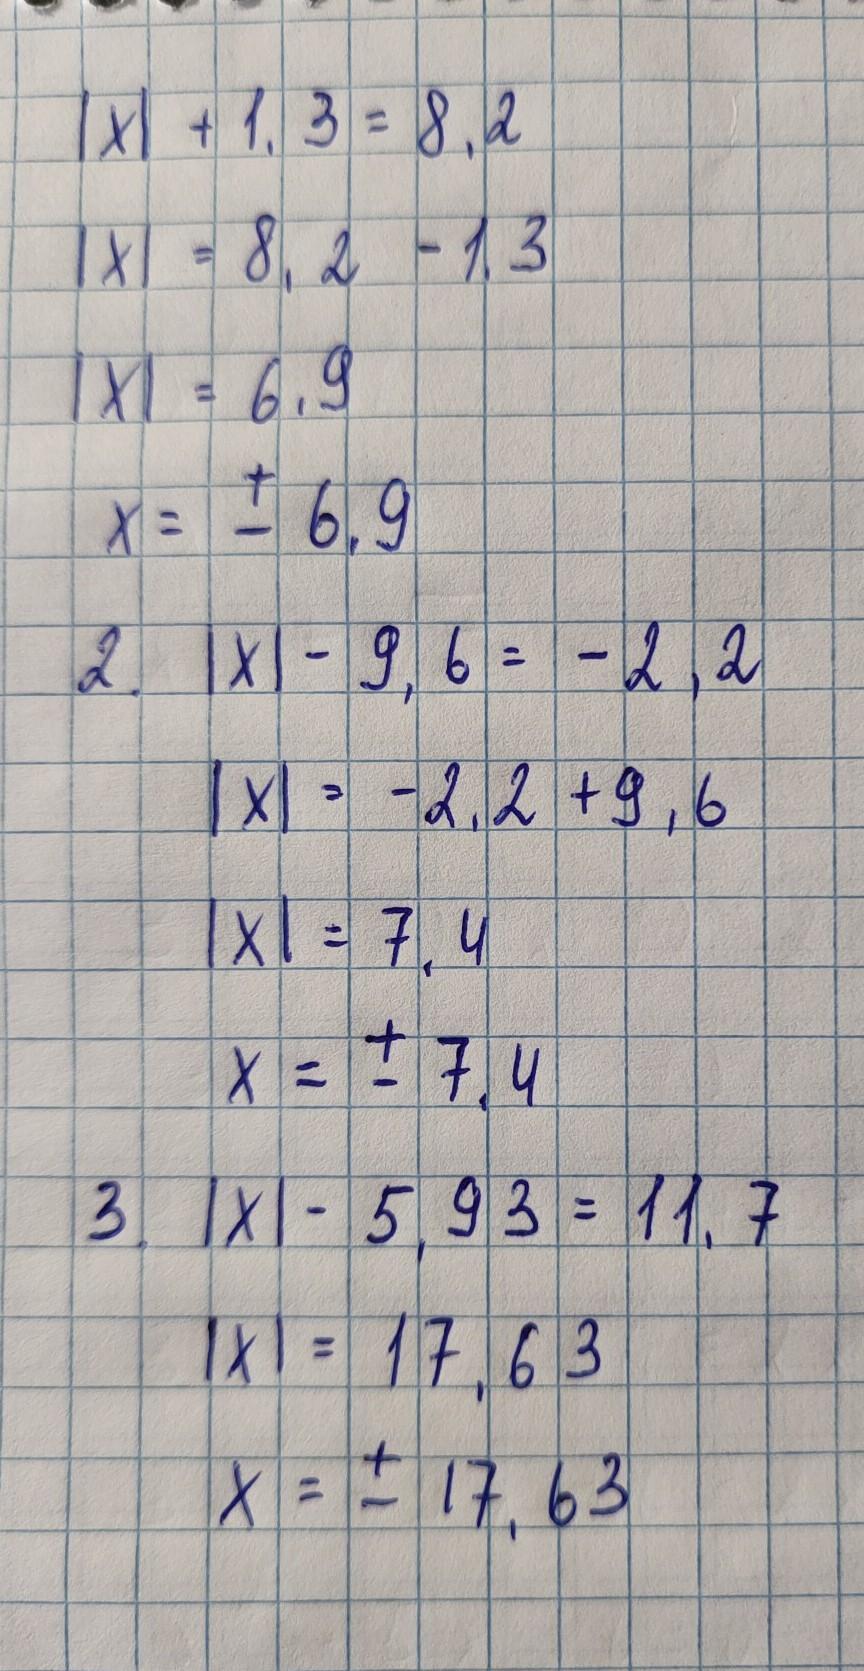 |x| + 1,3 = 8,2
|x| = 8,2 - 1,3
|x| = 6,9
x = ± 6,9
2. |x| - 9,6 = -2,2
|x| = -2,2 + 9,6
|x| = 7,4
x = ± 7,4
3. |x| - 5,93 = 11,7
|x| = 17,63
x = ± 17,63